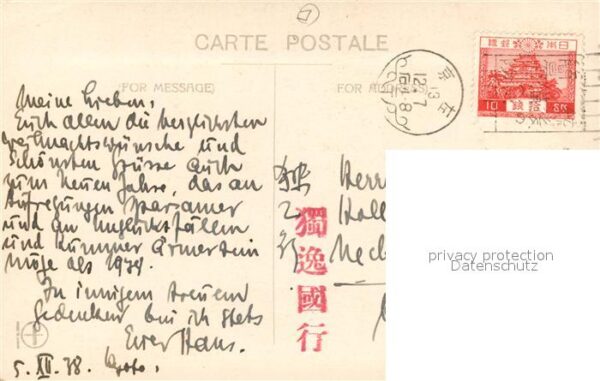 CARTE POSTALE
(FOR MESSAGE)
(FOR ADD
Meine Lieben,
Euch allen die herzlichsten
Weihnachtswünsche und
schönsten Grüsse auch
zum neuen Jahre, das an
Aufregungen sparsamer
und an Unglücksfällen
und Kummer ärmer sein
möge als 1938.
In innigem treuem
Gedenken bin ich stets
Euer Hans.
5. XII. 38. Kyoto.
Herr
獨逸國行
大日本帝國郵便
10
拾錢
privacy protection
Datenschutz